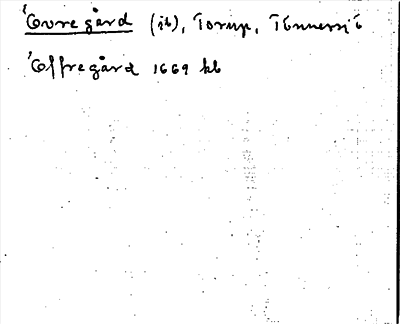 Ovregård (ib), Torup, Tönnersjö
Offregård 1669 kb